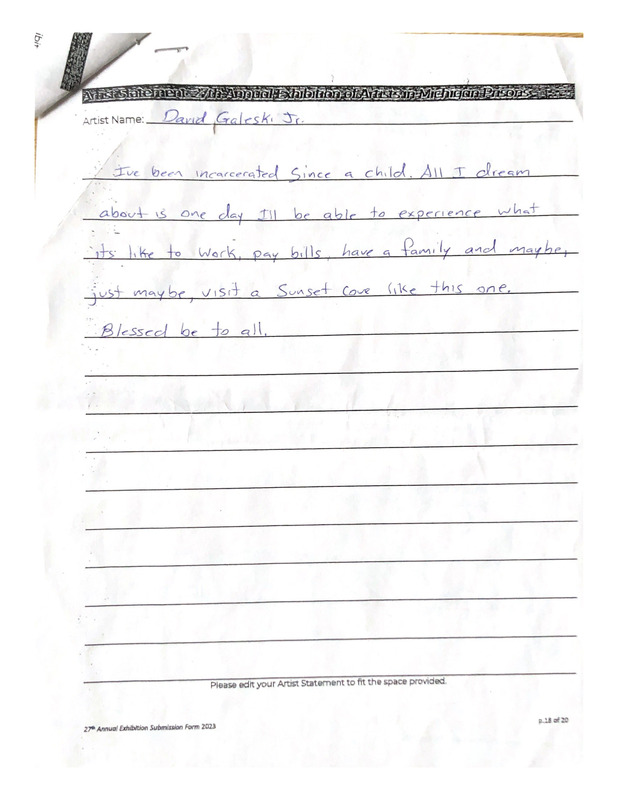 Artist Statement: 27th Annual Exhibition of Artists in Michigan Prisons
Artist Name: David Galeski Jr.
Ive been incarcerated Since a child. All I dream
about is one day Ill be able to experience what
its like to work, pay bills, have a family and maybe,
just maybe, visit a Sunset Cove like this one.
Blessed be to all.
Please edit your Artist Statement to fit the space provided.
27th Annual Exhibition Submission Form 2023
p.18 of 20